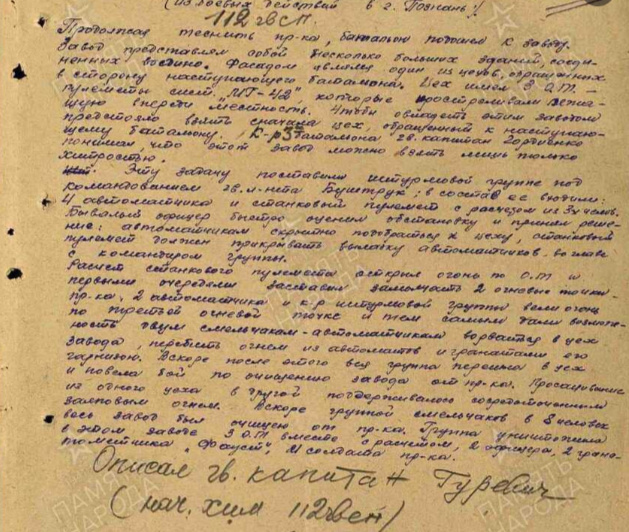 (из боевых действий в г. Познань!)
112 гвсп.
Продолжая теснить пр-ка, батальон подошел к заводу.
Завод представлял собой несколько больших зданий, соеди-
ненных воедино. Фасадом являлся один из цехов, обращенных
в сторону наступающего батальона. Цех имел 3 О.Т. –
пулеметы сист. „МГ-42", которые простреливали
щую впереди местность. Чтобы овладеть этим заводом
предстояло взять сначала цех, обращенный к наступаю-
щему батальону. К-р батальона гв. капитан Гордиенко
понимал, что этот завод можно взять лишь только
хитростью.
Эту задачу поставили штурмовой группе под
командованием гв. л-нта Буштрук: в состав ее входили:
4 автоматчика и станковый пулемет с расчетом из 3х челов.
Бывалый офицер быстро оценил обстановку и принял реше-
ние: автоматчикам скрытно подобраться к цеху, а станковый
пулемет должен прикрывать вылазку автоматчиков во главе
с командиром группы.
Расчет станкового пулемета открыл огонь по О.Т. и
первыми очередями заставил замолчать 2 огневые точки
пр-ка. 2 автоматчика и к-р штурмовой группы вели огонь
по третьей огневой точке и тем самым дали возмож-
ность двум смельчакам-автоматчикам ворваться в цех
завода, перебить огнем из автоматов и гранатами его
гарнизон. Вскоре после этого вся группа перешла в цех
и повела бой по очищению завода от пр-ка. Просачивание
из одного цеха в другой поддерживалось сосредоточенным
залповым огнем. Вскоре группой смельчаков в 8 человек
весь завод был очищен от пр-ка. Группа уничтожила
в этом заводе 3 О.Т. вместе с расчетом, 2 офицера, 2 грана-
тометчика „Фауст", 21 солдата пр-ка.
Описал гв. капитан Гуревич
(нач. хим 112 гвсп)
ПАМЯТЬ
НАРОДА